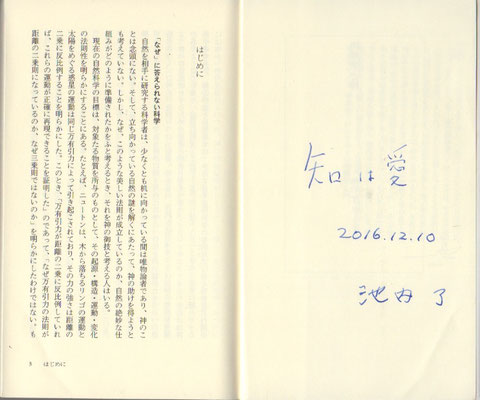 知は愛
2016.12.10
池内了
はじめに
「なぜ」に答えられない科学
自然を相手に研究する科学者は、少なくとも机に向かっている間は唯物論者であり、神のこ
とは念頭にない。そして、立ち向かっている自然の謎を解くにあたって、神の助けを得ようと
も考えていない。しかし、なぜ、このような美しい法則が成立しているのか、自然の絶妙な仕
組みがどのように準備されたかをふと考えるとき、それを神の御技と考える人はいる。
現在の自然科学の目標は、対象たる物質を所与のものとして、その起源・構造・運動・変化
の法則性を明らかにすることにある。たとえば、ニュートンは、木から落ちるリンゴの運動と
太陽をめぐる惑星の運動は同じ万有引力によって引き起こされており、その力の強さは距離の
二乗に反比例することを明らかにした。このとき、「万有引力が距離の二乗に反比例していれ
ば、これらの運動が正確に再現できることを証明した」のであって、「なぜ万有引力の法則が
距離の二乗則になっているのか、なぜ三乗則ではないのか」を明らかにしたわけではない。も
3 はじめに